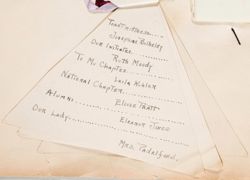 Toastmistress....
Josephine Bulkeley
Our Initiates....
Ruth Moody
To Mu Chapter....
Leila Kohler
National Chapter....
Eloise Pratt
Alumni....
Eleanor
Our Lady....
Mrs. Padelford.